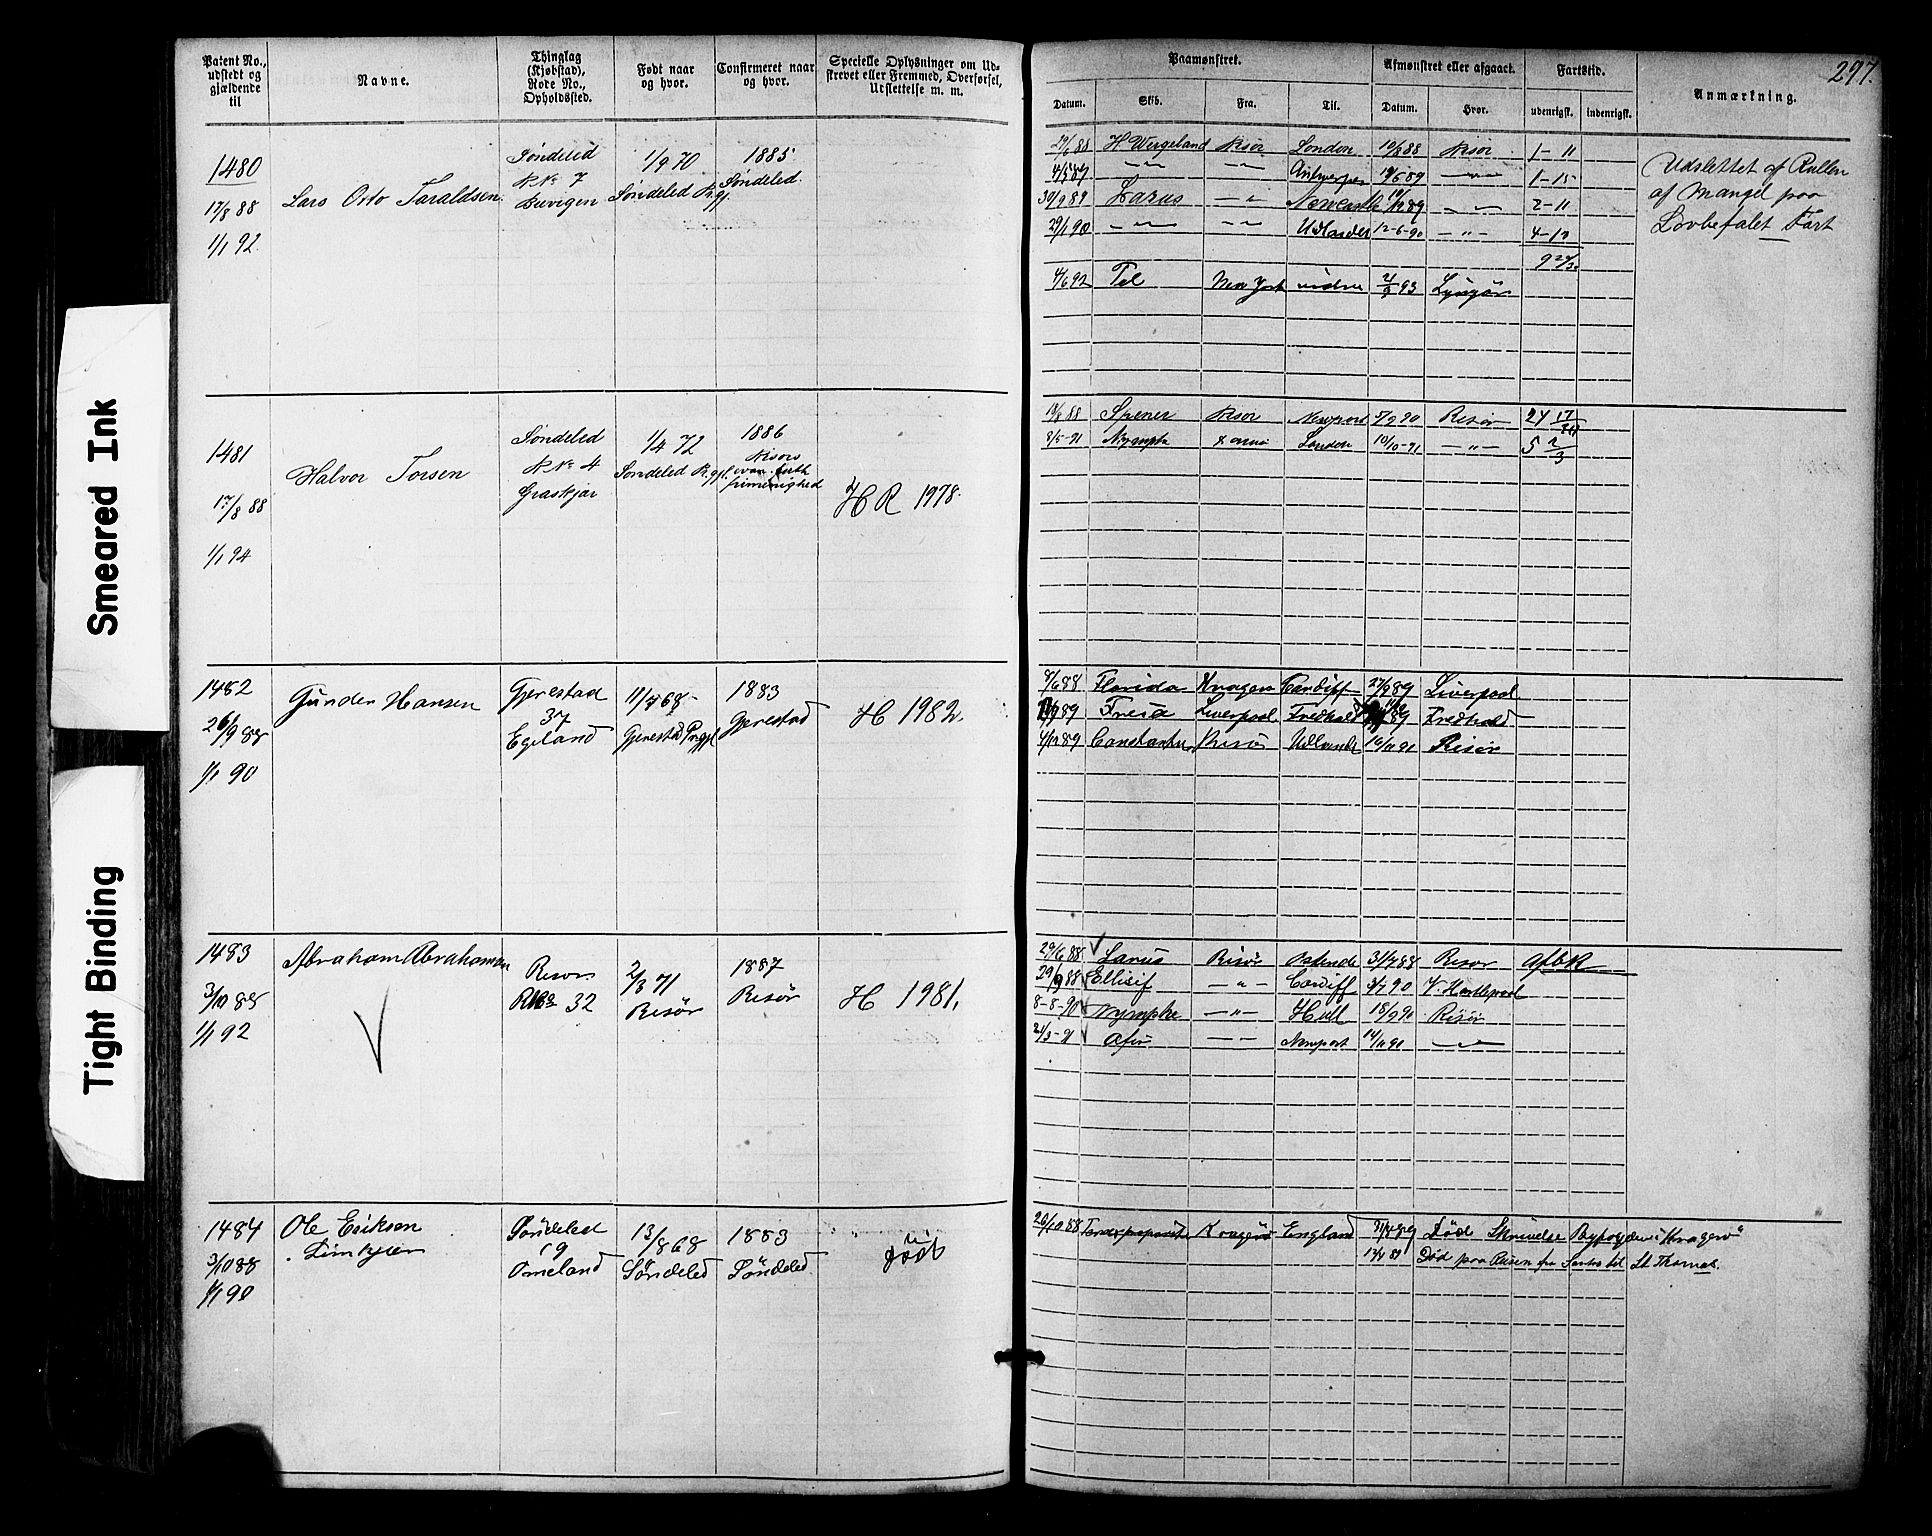 Smeared Ink
Tight Binding
Patent No., udstedt og gjældende til
Navne.
Thinglag (Kjøbstad), Rode No., Opholdssted.
Født naar og hvor.
Confirmeret naar og hvor.
Specielle Oplysninger om Udskrevet eller Fremmed, Overførsel, Udslettelse m. m.
Paamønstret.
Afmønstret eller afgaaet.
Fartstid.
297.
Datum. Skib. Fra. Til. Datum. Hvor. udenrigsk. indenrigsk. Anmærkning.
1480
17/8 88
1/1 92.
Lars Otto Taraldsen.
Søndeled
R No 7
1/9 70
Søndeled Pr.gj.
1885
Søndeled.
29/6 88 H Wergeland Risör London 10/8 88 Risör 1-11
Antwerpen 19/6 89 1-15
30/9 89 Lazus Newcastle 89 2-11
29/1 90 Udlandet 12-6-90 4-18
4/6 92 Tel New York 2/9 93 Lyngör
Udslettet af Rullen
af Mangel paa
Lovbefalet Fart
1481
17/8 88
1/1 94
Halvor Torsen
Søndeled
R No 4
Graskjær
1/4 72
Søndeled Pr.gj.
1886
Risørs
evan. luth
frimenighed
H R 1978.
10/8 88 Spener Risör Newport 5/9 90 Risør 24 17/30
8/5-91 Nymph London 10/10-91 5 2/3
1482
26/9 88
1/1 90
Gunder Hansen
Gjerestad
37
Egeland
11/7 68
Gjerestad Prgj.
1883
Gjerestad
H 1982.
8/6 88 Florida Kragerø Cardiff 27/9 89 Liverpool
89 Freia Liverpool Fredhald 89 Fredhald
4/12 89 Risör Udlandet 10/11 91 Risør
1483
3/10 88
1/1 92
Abraham Abrahamsen
Risør
32
2/3 71
Risør
1887
Risør
H 1981.
29/6 88 Larus Risør Ostende 31/7 88 Risør Afb R
29/9 88 Ellisif Cardiff 90 V. Hartlepool
8-8-90 Nymphe Hull 18/9 90 Risør
21/3-91 Newport
1484
3/10 88
1/1 90
Ole Eriksen
Søndeled
19
Omeland
13/8 68
Søndeled
1883
Søndeled
død
20/10 88 Kragerø England Død Skrivelse
Død paa Reisen fra Santos til St Thomas.